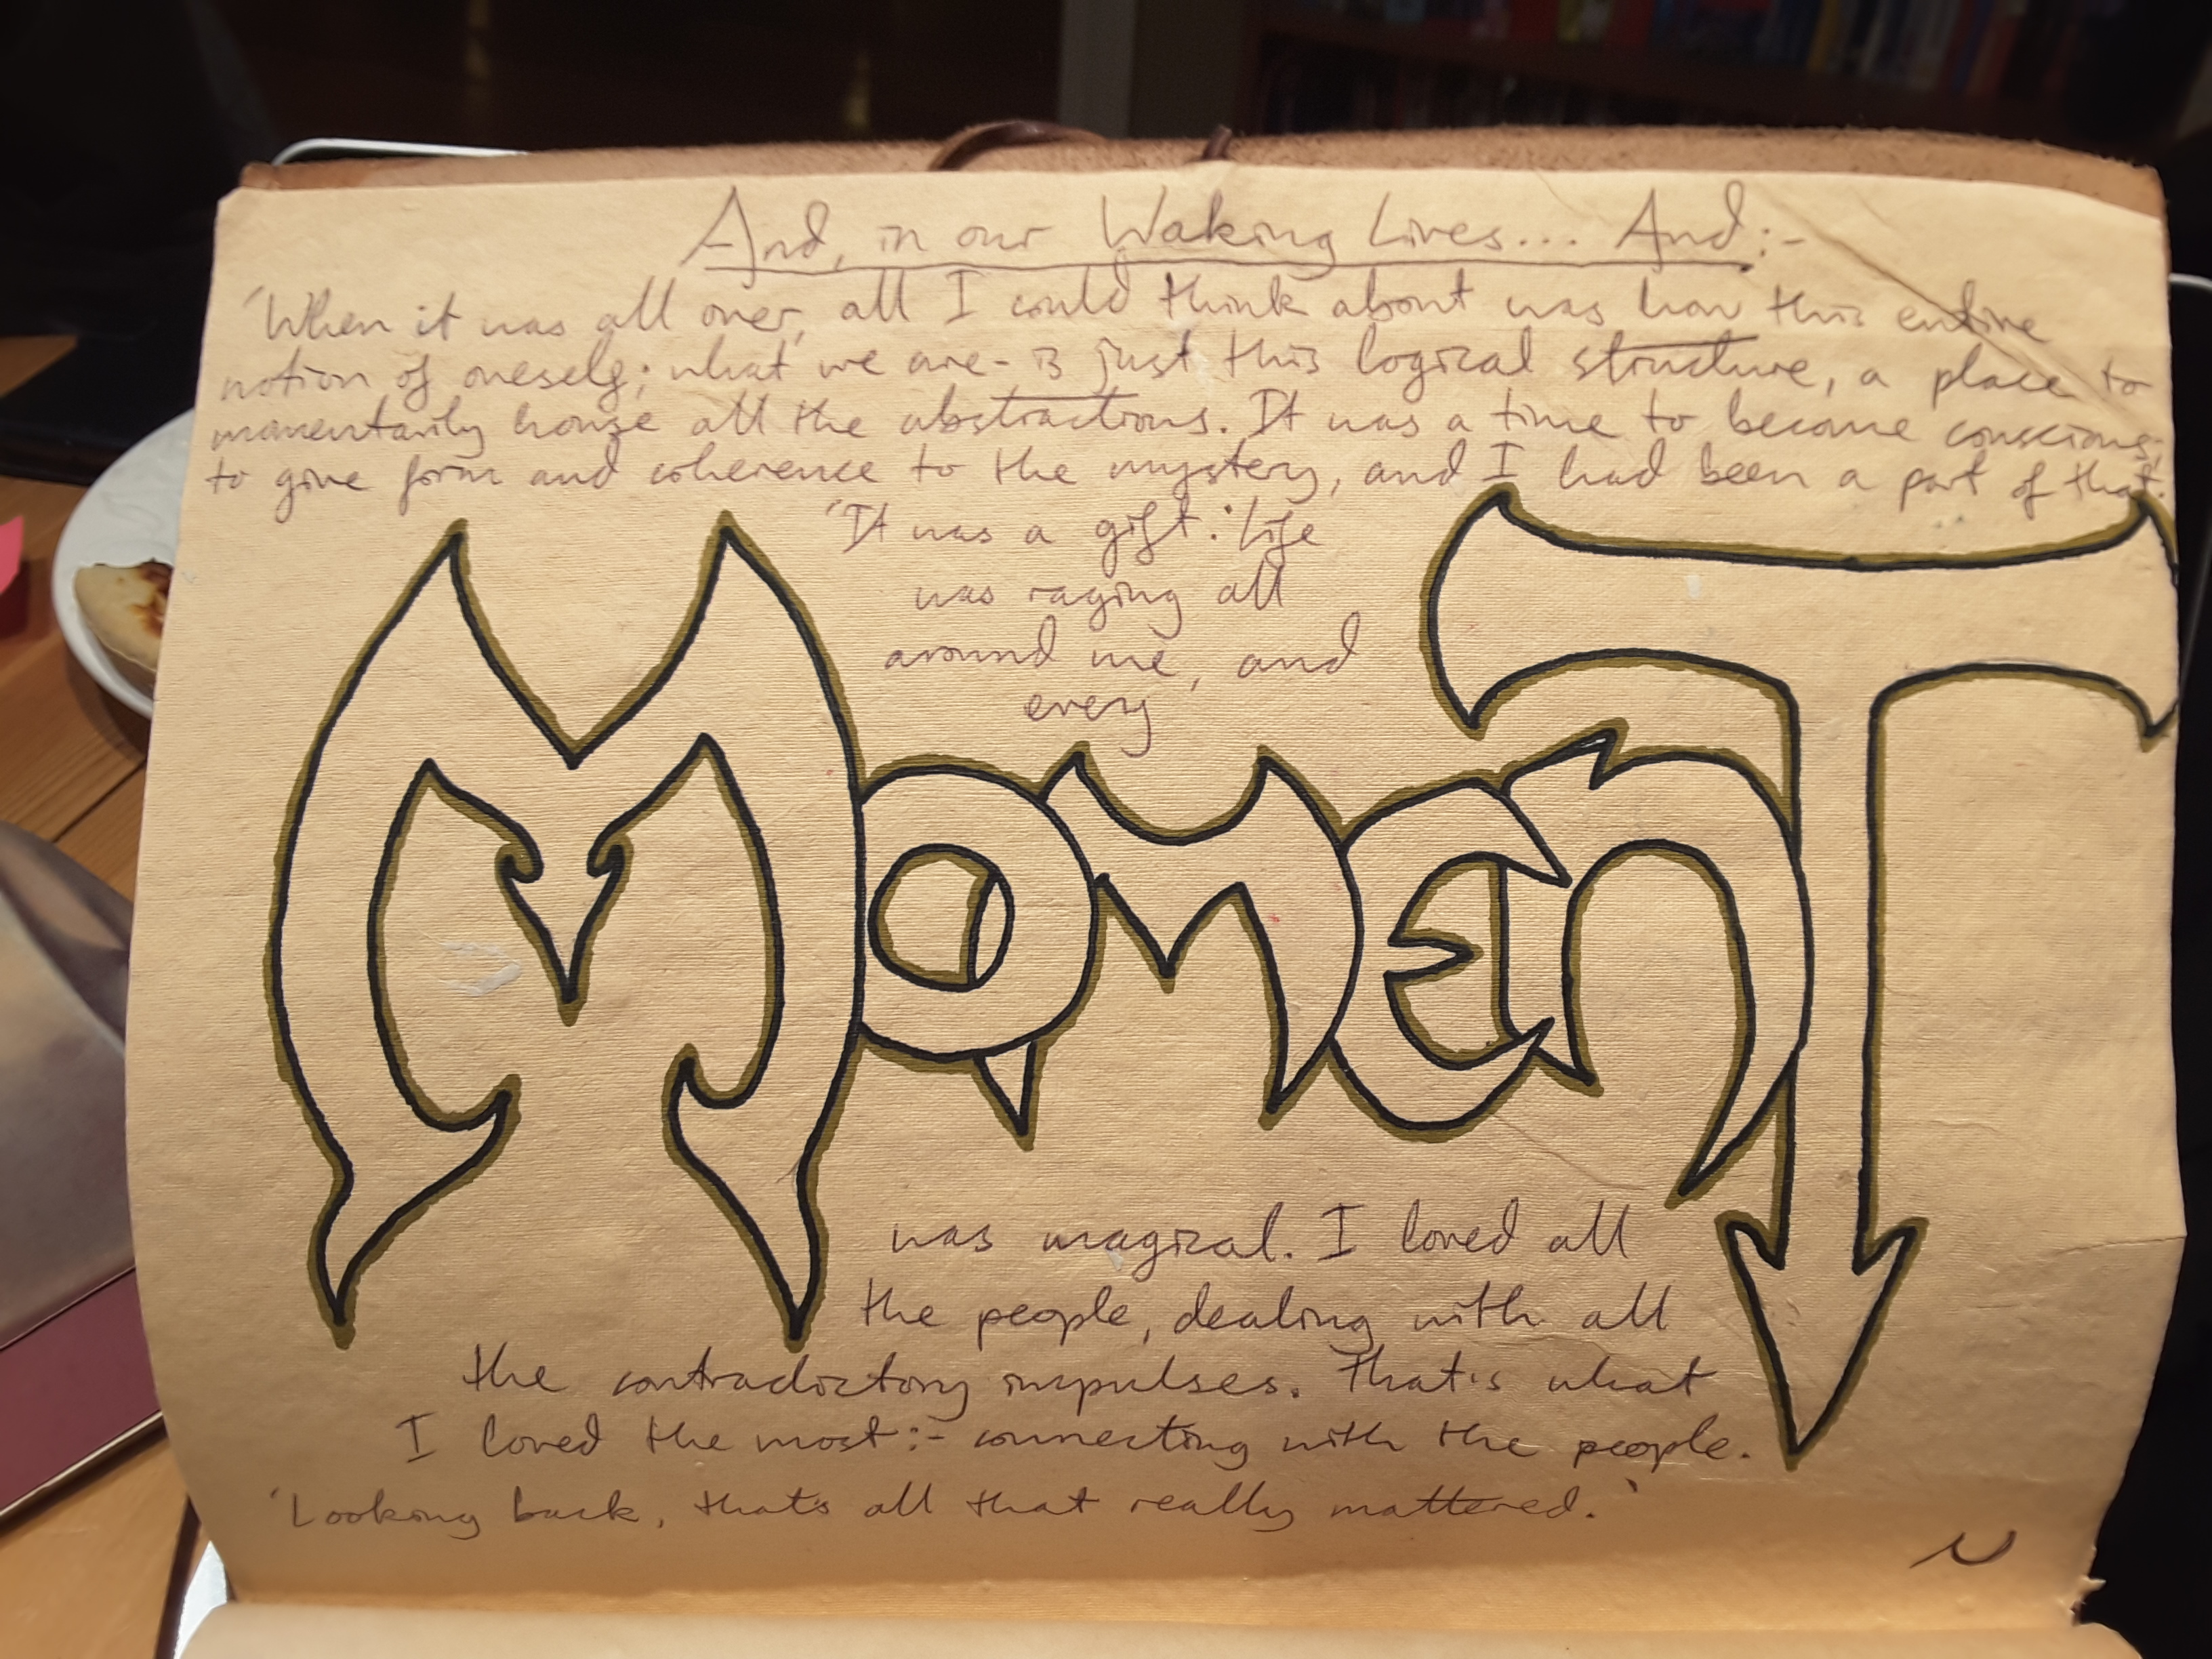 And, in our Waking Lives... And:-
'When it was all over, all I could think about was how this entire
notion of oneself; what we are - is just this logical structure, a place to
momentarily house all the abstractions. It was a time to become conscious;
to give form and coherence to the mystery, and I had been a part of that.
'It was a gift. 'Life
was raging all
around me, and
every
MOMENT
was magical. I loved all
the people, dealing with all
the contradictory impulses. That's what
I loved the most:- connecting with the people.
'Looking back, that's all that really mattered.'